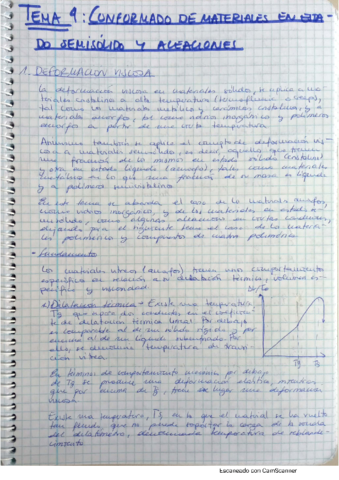 TEMA 9: CONFORMADO DE MATERIALES EN ESTA-
DO SEMISÓLIDO Y ALEACIONES
1. DEFORMACIÓN VISCOSA
La deformación viscosa en materiales sólidos, se aplica a ma-
teriales cristalinos a alta temperatura
tal como los materiales metálicos y cerámicos cristalinos, y a
materiales amorfos, tal como vidrios inorgánicos y polímeros
amorfos a partir de una cierta temperatura.
Asimismo también se aplica el concepto de deformación vis-
cosa a materiales semisólidos, es decir, aquellos que tienen
una fracción de la misma en estado sólido (cristalino)
y otra en estado líquido (amorfo), tales como materiales
metálicos en los que una fracción de su masa es líquida
y a polímeros semicristalinos.
En este tema se aborda el caso de los materiales amorfos,
como vidrios inorgánicos, y de los materiales en estado se-
misólido, como algunas aleaciones en ciertas condiciones,
dejando para el siguiente tema el caso de los materia-
les poliméricos y compuestos de matriz polimérica.
• Fundamento
Los materiales vítreos (amorfos) tienen un comportamiento
específico en relación a su dilatación térmica, volumen es-
pecífico y viscosidad
a) Dilatación térmica → Existe una temperatura
Tg que marca un cambio en el coeficien-
te de dilatación térmica lineal. Por debajo
se comporta al de un sólido rígido y por
encima al de un líquido subenfriado. Por
ello, se denomina temperatura de transi-
ción vítrea.
ΔL/L₀
Tg
T
En términos de comportamiento mecánico, por debajo
de Tg se produce una deformación elástica, mientras
que por encima de Tg, tiene lugar una deformación
viscosa
Existe una temperatura, en la que el material se ha vuelto
tan fluido, que no puede soportar la carga de la
del dilatómetro, denominada temperatura de reblande-
cimiento
Escaneado con CamScanner